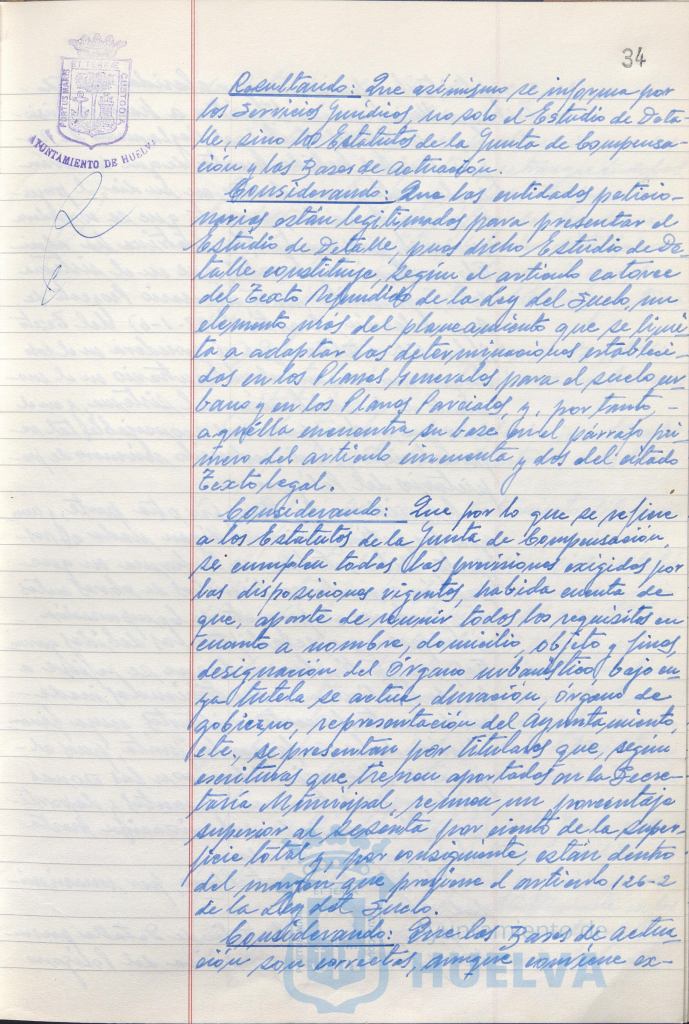 34
PORTUS MARIS ET TERRAE CUSTODIA
AYUNTAMIENTO DE HUELVA
Resultando: Que asímismo se informa por
los Servicios Jurídicos, no solo el Estudio de Deta-
lle, sino los Estatutos de la Junta de Compensa-
ción y las Bases de Actuación.
Considerando: Que las entidades peticio-
narias están legitimados para presentar el
Estudio de Detalle, pues dicho Estudio de De-
talle constituye, según el artículo catorce
del Texto Refundido de la Ley del Suelo, un
elemento más del planeamiento que se limi-
ta a adaptar las determinaciones estableci-
das en los Planes Generales para el suelo ur-
bano y en los Planes Parciales, y, por tanto, -
aquélla encuentra su base en el párrafo pri-
mero del artículo cincuenta y dos del citado
Texto legal.
Considerando: Que por lo que se refiere
a los Estatutos de la Junta de Compensación,
se cumplen todas las previsiones exigidos por
las disposiciones vigentes, habida cuenta de
que, aparte de reunir todos los requisitos en
cuanto a nombre, domicilio, objeto y fines,
designación del Órgano urbanístico, bajo cu-
ya tutela se actúe, duración, órgano de
gobierno, representación del Ayuntamiento,
etc., se presentan por titulares que, según
escrituras que tienen aportados en la Secre-
taría Municipal, reunen un porcentaje
superior al sesenta por ciento de la super-
ficie total y, por consiguiente, están dentro
del margen que previene el artículo 126-2
de la Ley del Suelo.
Considerando: Que las Bases de Actua-
ción son correctas, aunque conviene ex-
Ayuntamiento de
HUELVA